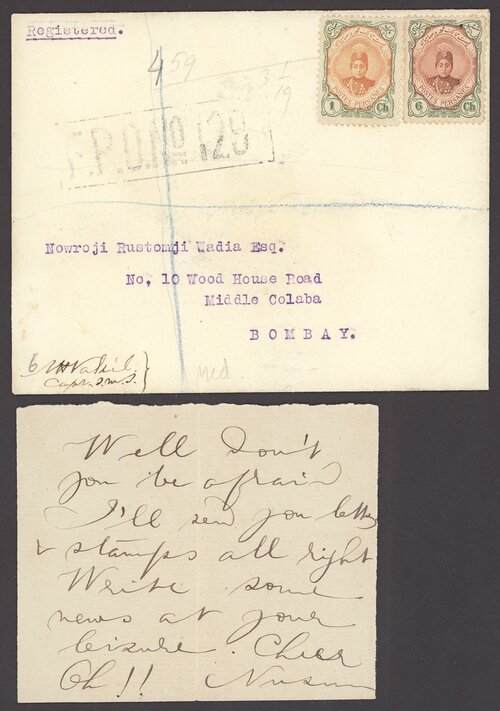 Registered.
4 59
3 1/19
1 Ch
POSTES PERSANES
6 Ch
POSTES PERSANES
F.P.O. No 129
Nowroji Rustomji Wadia Esq.
No, 10 Wood House Road
Middle Colaba
BOMBAY.
Capt. I.M.S.
Med.
Well Don't
you be afraid
I'll send you letters
& stamps all right
Write some
news at your
leisure. Cheer
Oh!!